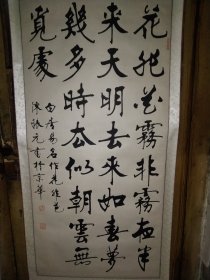 花非花霧非霧夜半
來天明去來如春夢
幾多時去似朝雲無
覓處
白居易名作花非花
元書於京華